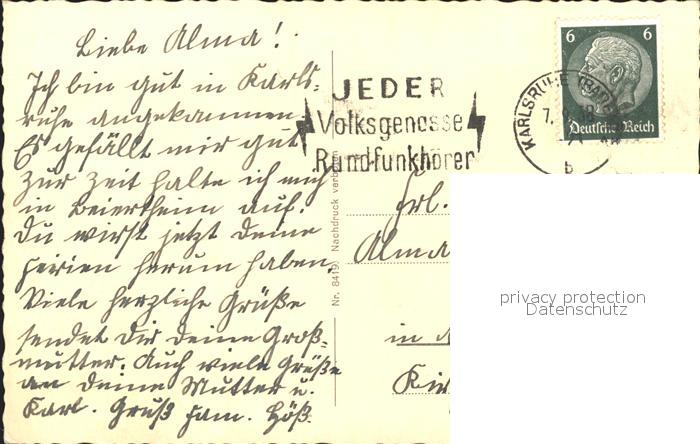 Liebe Alma!
Ich bin gut in Karls-
ruhe angekommen.
Es gefällt mir gut
zur Zeit halte ich mich
in Beiertheim auf.
Du wirst jetzt Deine
Ferien herum haben.
Viele herzliche Grüße
sendet Dir Deine Groß-
mutter. Auch viele Grüße
an Deine Mutter u.
Karl. Gruß Fam. Höß.
JEDER
Volksgenosse
Rundfunkhörer
Nr. 8419 Nachdruck verboten
6 6
Deutsches Reich
KARLSRUHE (BADEN)
7.
b
Frl.
Alma
in
Kir
privacy protection
Datenschutz